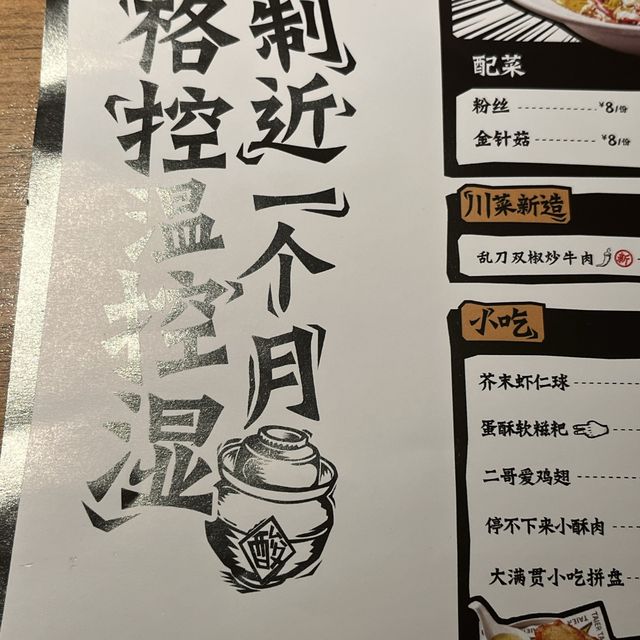 制近一个月
格控温控湿
酸
配菜
粉丝 ¥8/份
金针菇 ¥8/份
川菜新造
乱刀双椒炒牛肉 新
小吃
芥末虾仁球
蛋酥软糍粑
二哥爱鸡翅
停不下来小酥肉
大满贯小吃拼盘
TAIER